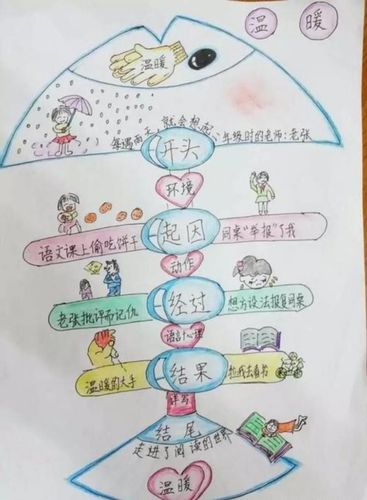 温 暖
温暖
每遇雨天,就会想起二年级时的老师:老张
开头
环境
语文课上偷吃饼干 起因 同桌“举报”了我
动作
老张批评而记仇 经过 想方设法报复同桌
语言+心理
温暖的大手 结果 拉我去看书
详写
结尾
走进了阅读的世界
温暖